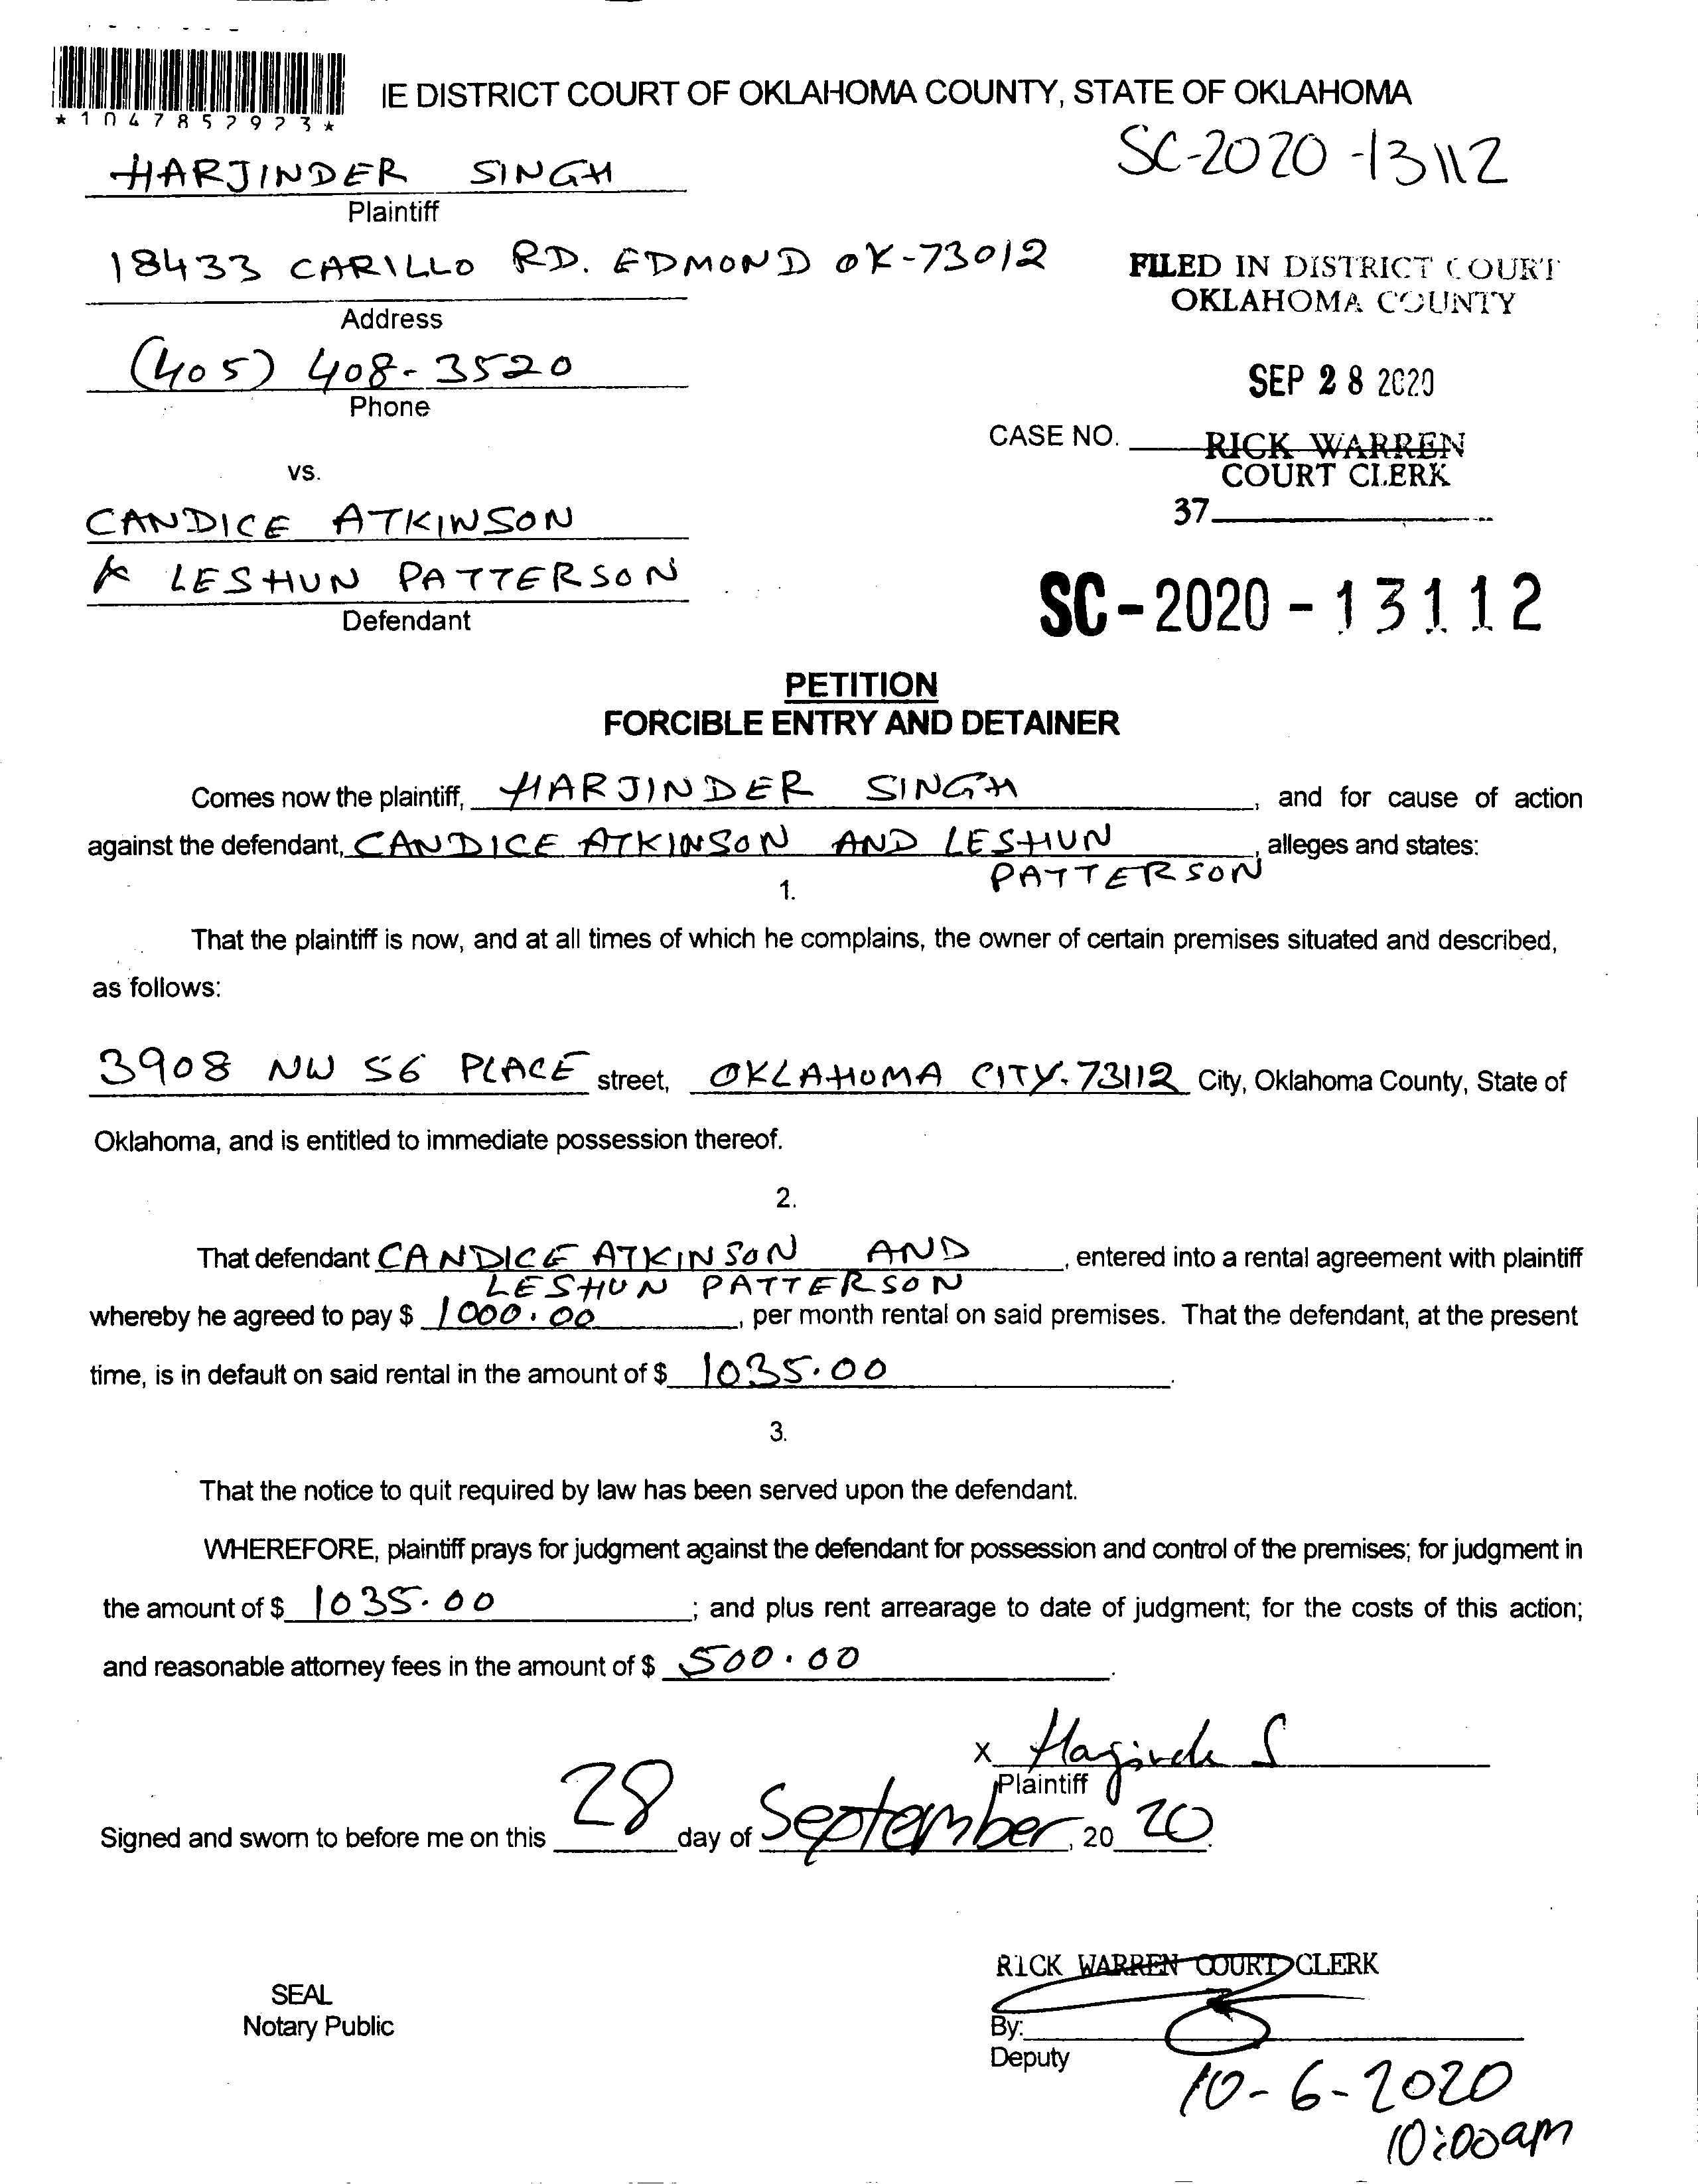 IE DISTRICT COURT OF OKLAHOMA COUNTY, STATE OF OKLAHOMA
*1047852923*
SC-2020-13112
HARJINDER SINGH
Plaintiff
18433 CARILLO RD. EDMOND OK-73012
FILED IN DISTRICT COURT
OKLAHOMA COUNTY
Address
(405) 408-3520
SEP 28 2020
Phone
CASE NO.
RICK WARREN
COURT CLERK
vs.
37
CANDICE ATKINSON
& LESHUN PATTERSON
SC-2020-13112
Defendant
PETITION
FORCIBLE ENTRY AND DETAINER
Comes now the plaintiff, HARJINDER SINGH, and for cause of action
against the defendant, CANDICE ATKINSON AND LESHUN, alleges and states:
PATTERSON
1.
That the plaintiff is now, and at all times of which he complains, the owner of certain premises situated and described,
as follows:
3908 NW 56 PLACE street, OKLAHOMA CITY. 73112 City, Oklahoma County, State of
Oklahoma, and is entitled to immediate possession thereof.
2.
That defendant CANDICE ATKINSON AND, entered into a rental agreement with plaintiff
LESHUN PATTERSON
whereby he agreed to pay $ 1000.00, per month rental on said premises. That the defendant, at the present
time, is in default on said rental in the amount of $ 1035.00.
3.
That the notice to quit required by law has been served upon the defendant.
WHEREFORE, plaintiff prays for judgment against the defendant for possession and control of the premises; for judgment in
the amount of $ 1035.00; and plus rent arrearage to date of judgment; for the costs of this action;
and reasonable attorney fees in the amount of $ 500.00.
X
Plaintiff
Signed and sworn to before me on this 28 day of September, 20 20.
RICK WARREN COURT CLERK
SEAL
Notary Public
By:
Deputy
10-6-2020
10:00am